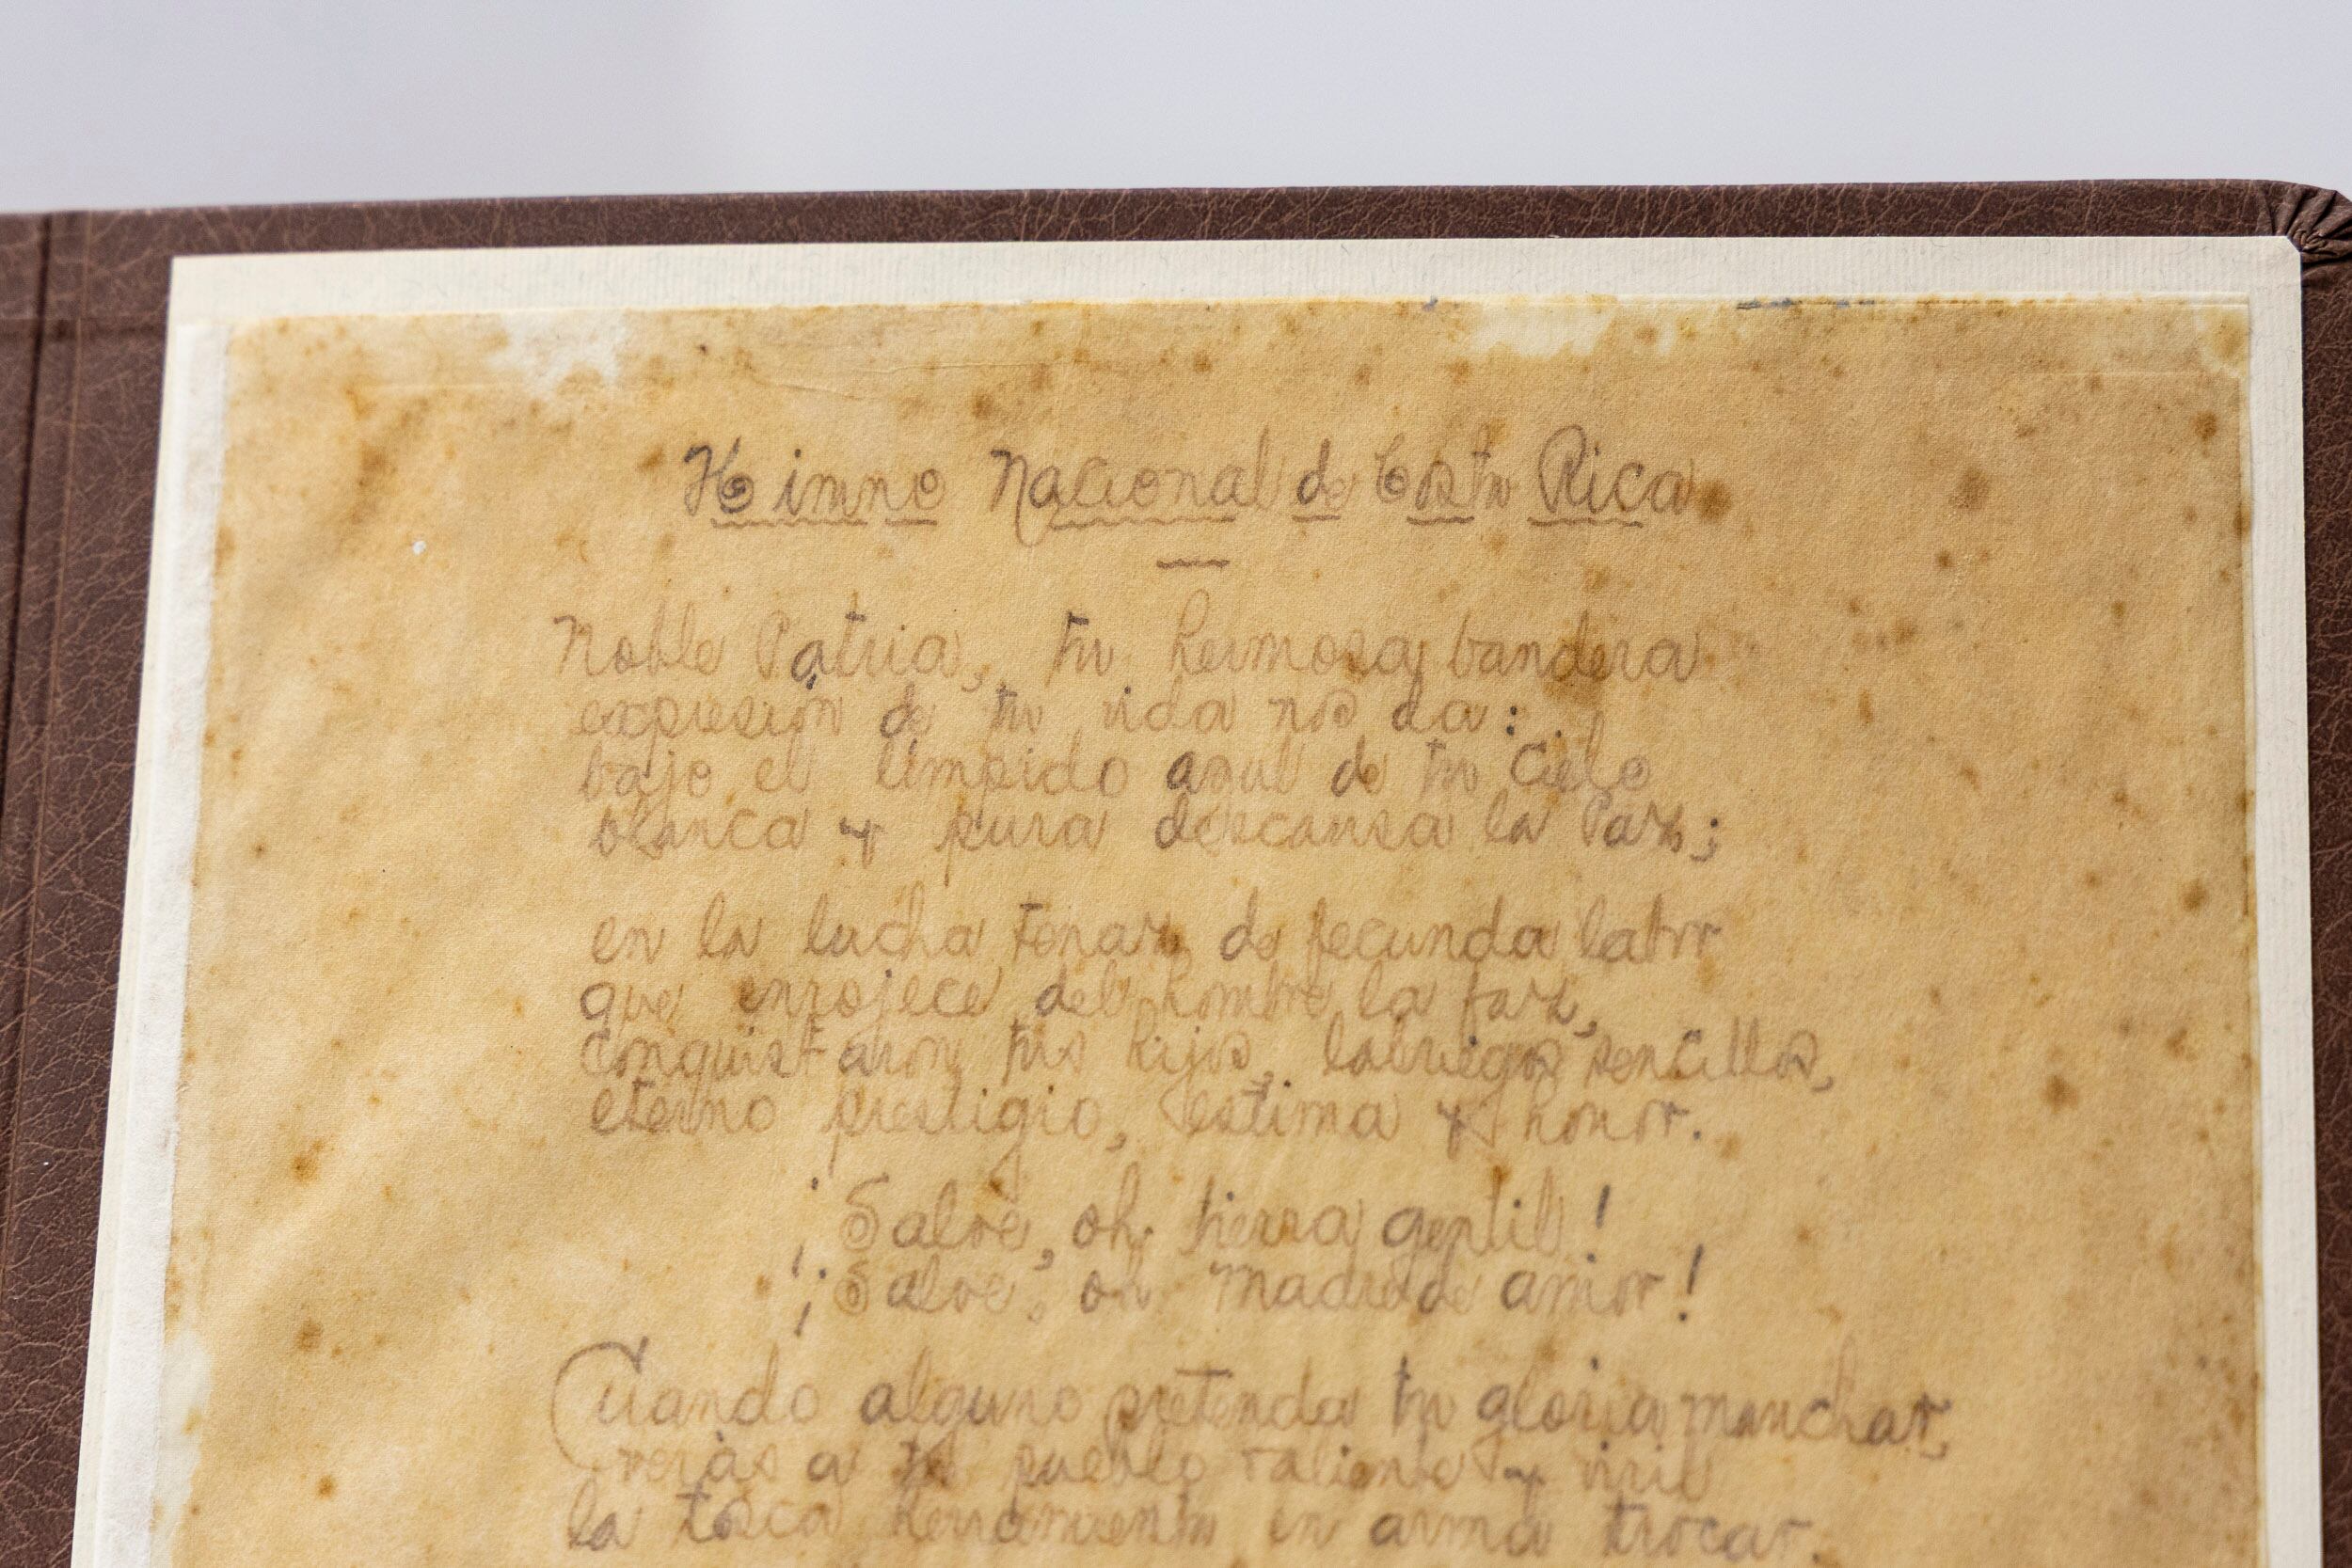 Himno Nacional de Costa Rica
Noble Patria, tu hermosa bandera
expresión de tu vida nos da:
bajo el límpido azul de tu Cielo
blanca y pura descansa la Paz;
en la lucha tenaz de fecunda labor
que enrojece del hombre la faz,
conquistaron tus hijos, labriegos sencillos,
eterno prestigio, estima y honor.
¡Salve, oh tierra gentil!
¡Salve, oh Madre de amor!
Cuando alguno pretenda tu gloria manchar,
verás a tu pueblo valiente y viril
la tosca herramienta en arma trocar.